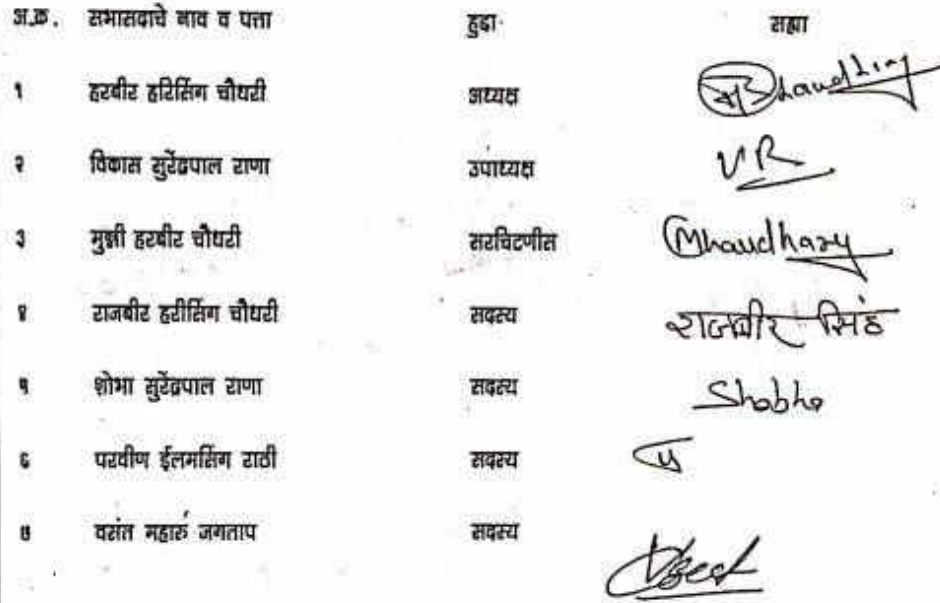 अ.क्र. सभासदाचे नाव व पत्ता हुद्दा सह्या
१ हरबीर हरिसिंग चौधरी अध्यक्ष
२ विकास सुरेंद्रपाल राणा उपाध्यक्ष VR
३ मुन्नी हरबीर चौधरी सरचिटणीस MChaudhary
४ राजबीर हरीसिंग चौधरी सदस्य राजबीर सिंह
५ शोभा सुरेंद्रपाल राणा सदस्य Shobha
६ परवीण ईलमसिंग राठी सदस्य
७ वसंत महारु जगताप सदस्य